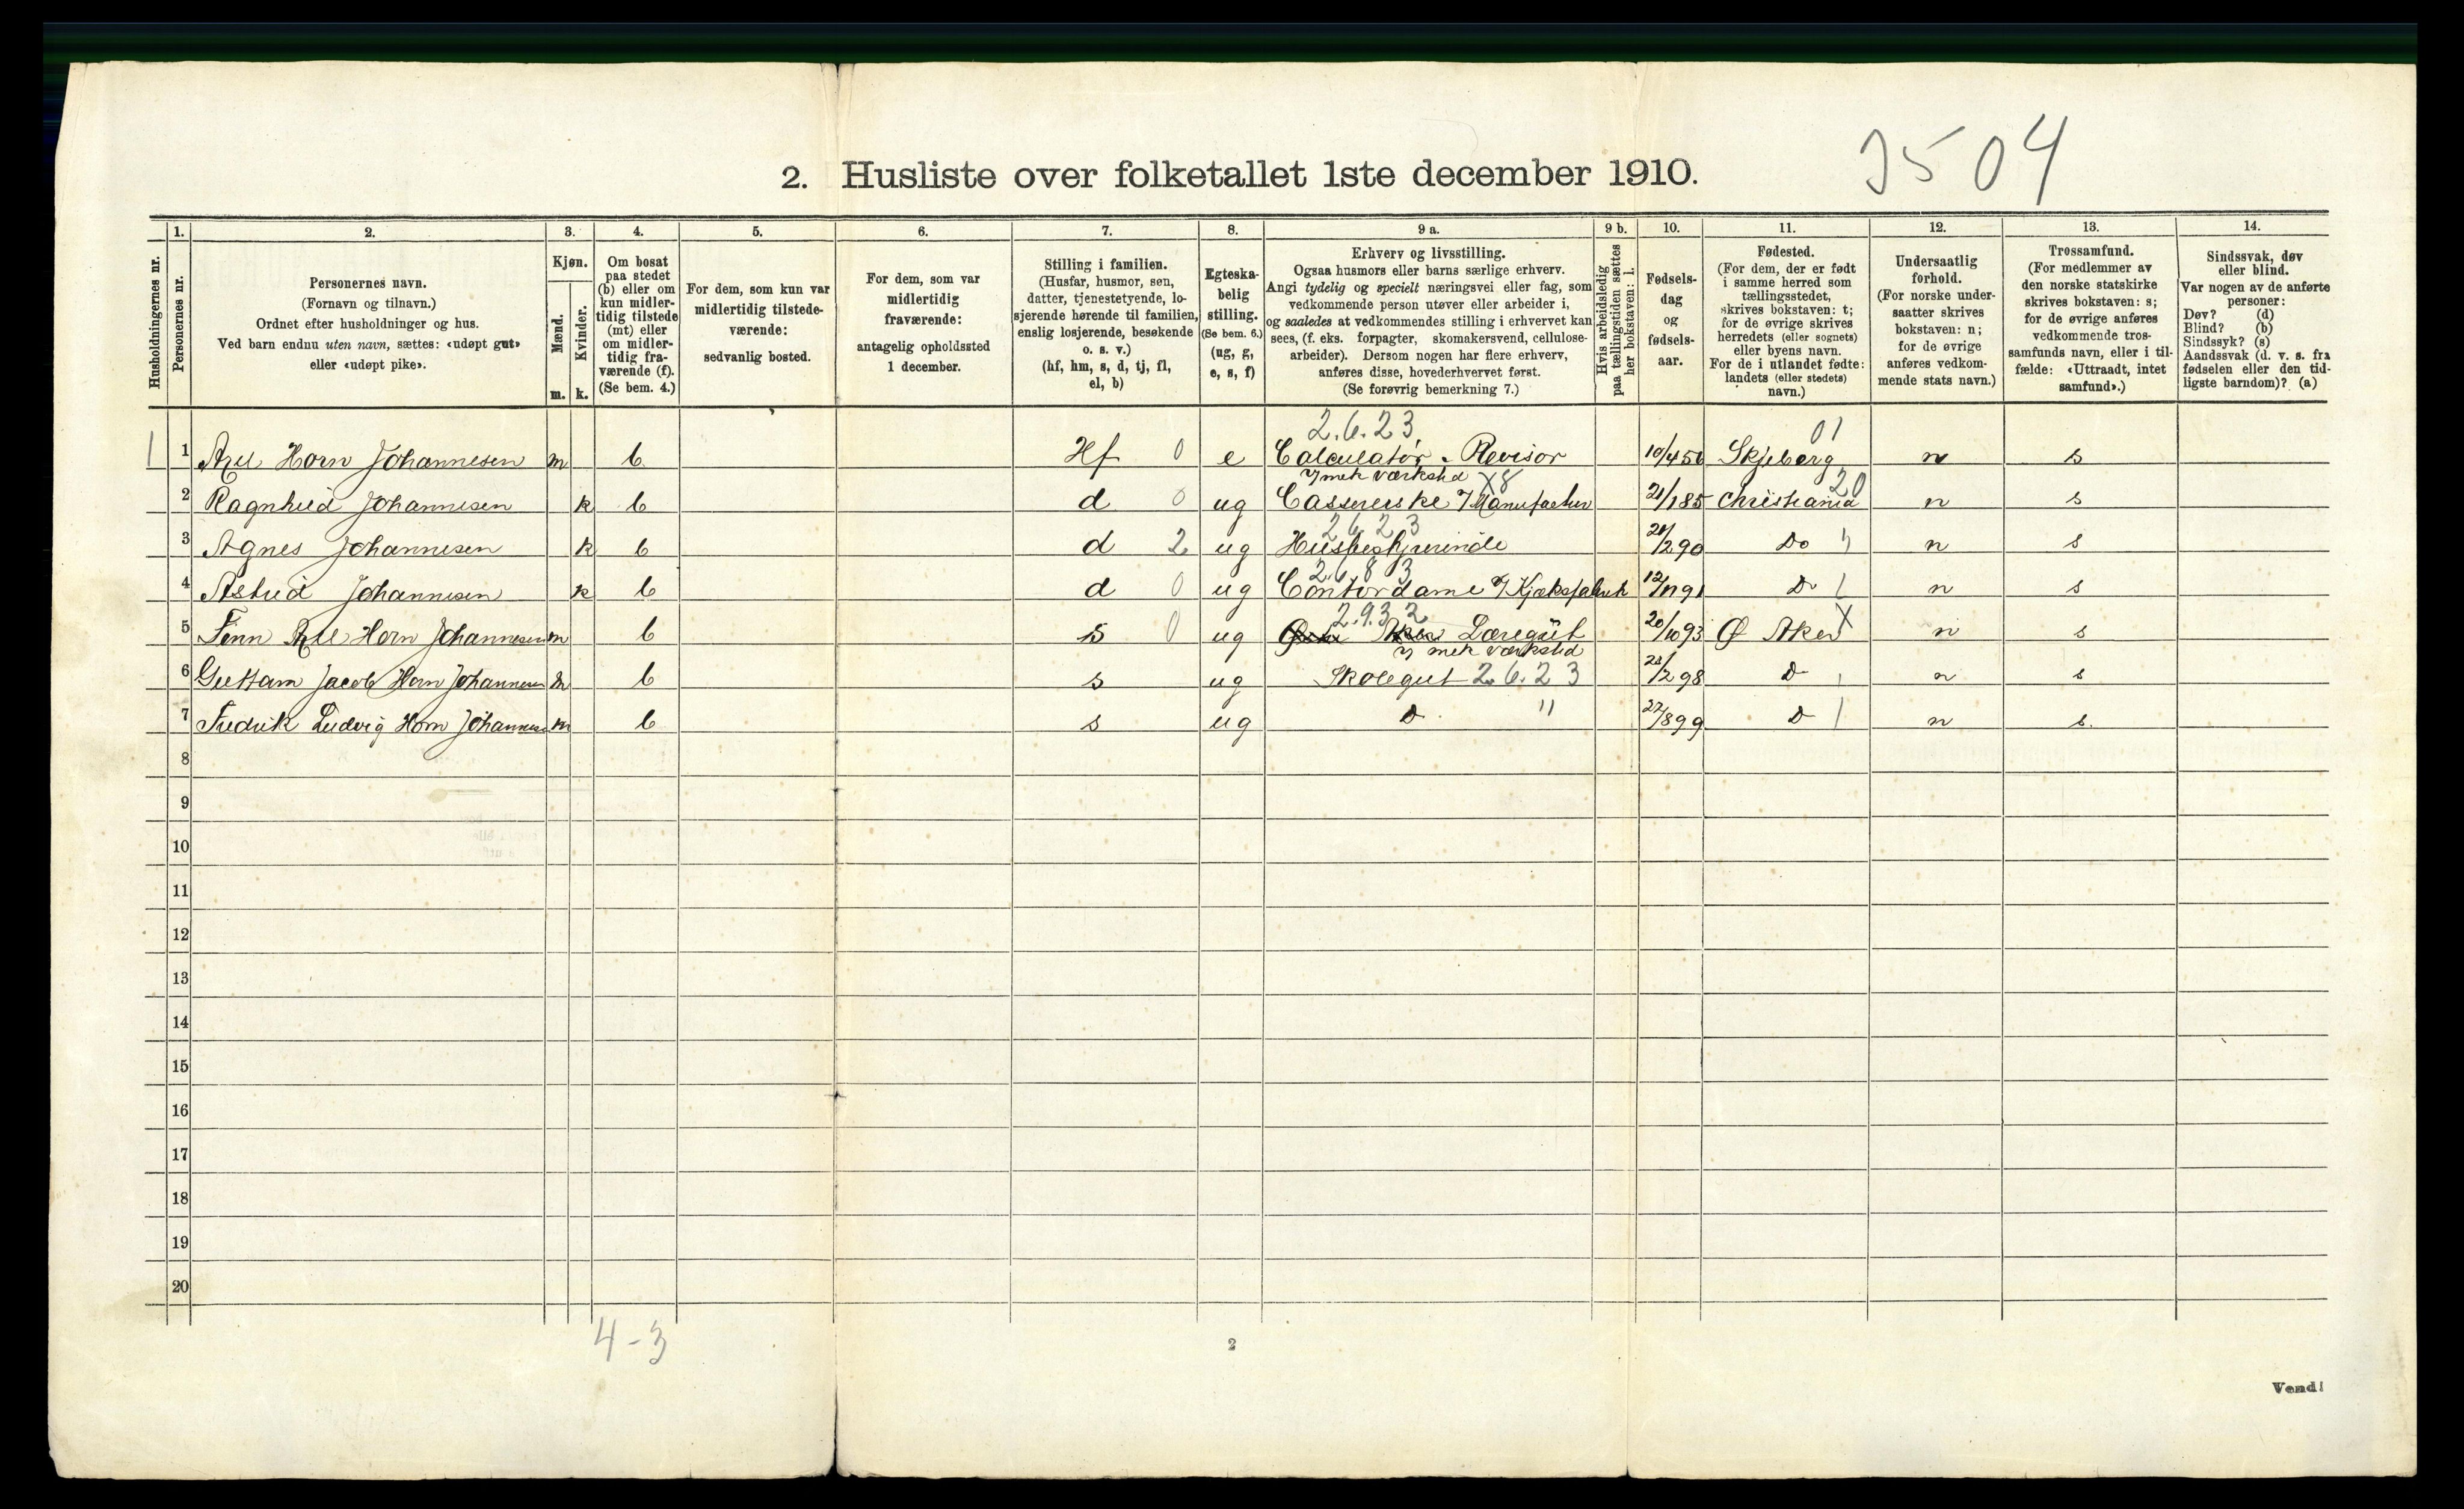 3504
2. Husliste over folketallet 1ste december 1910.
Husholdningernes nr.
1. Personernes nr.
2. Personernes navn.
(Fornavn og tilnavn.)
Ordnet efter husholdninger og hus.
Ved barn endnu uten navn, sættes: «udøpt gut»
eller «udøpt pike».
3. Kjøn.
Mænd. m.
Kvinder. k.
4. Om bosat
paa stedet
(b) eller om
kun midler-
tidig tilstede
(mt) eller
om midler-
tidig fra-
værende (f).
(Se bem. 4.)
5. For dem, som kun var
midlertidig tilstede-
værende:
sedvanlig bosted.
6. For dem, som var
midlertidig
fraværende:
antagelig opholdssted
1 december.
7. Stilling i familien.
(Husfar, husmor, søn,
datter, tjenestetyende, lo-
sjerende hørende til familien,
enslig losjerende, besøkende
o. s. v.)
(hf, hm, s, d, tj, fl,
el, b)
8. Egteska-
belig
stilling.
(Se bem. 6.)
(ug, g,
e, s, f)
9 a. Erhverv og livsstilling.
Ogsaa husmors eller barns særlige erhverv.
Angi tydelig og specielt næringsvei eller fag, som
vedkommende person utøver eller arbeider i,
og saaledes at vedkommendes stilling i erhvervet kan
sees, (f. eks. forpagter, skomakersvend, cellulose-
arbeider). Dersom nogen har flere erhverv,
anføres disse, hovederhvervet først.
(Se forøvrig bemerkning 7.)
9 b. Hvis arbeidsledig
paa tællingstiden sættes
her bokstaven: l.
10. Fødsels-
dag
og
fødsels-
aar.
11. Fødested.
(For dem, der er født
i samme herred som
tællingsstedet,
skrives bokstaven: t;
for de øvrige skrives
herredets (eller sognets)
eller byens navn.
For de i utlandet fødte:
landets (eller stedets)
navn.)
12. Undersaatlig
forhold.
(For norske under-
saatter skrives
bokstaven: n;
for de øvrige
anføres vedkom-
mende stats navn.)
13. Trossamfund.
(For medlemmer av
den norske statskirke
skrives bokstaven: s;
for de øvrige anføres
vedkommende tros-
samfunds navn, eller i til-
fælde: «Uttraadt, intet
samfund».)
14. Sindssvak, døv
eller blind.
Var nogen av de anførte
personer:
Døv? (d)
Blind? (b)
Sindssyk? (s)
Aandssvak (d. v. s. fra
fødselen eller den tid-
ligste barndom)? (a)
2.6.23 01
1 1 Axel Horn Johannesen m b Hf 0 e Calculatør, Revisor 10/4 56 Skjeberg n s
v/ mek værksted X8 20
2 Ragnhild Johannesen k b d 0 ug Cassererske v/ Manufactur 21/1 85 Christiania n s
2623
3 Agnes Johannesen k b d 2 ug Husbestyrerinde /2 90 Do n s
2.6 8 3
4 Astrid Johannesen k b d 0 ug Contordame v/ Kjæksfabrik 12/11 91 D n s
2.9.32
5 Finn Axel Horn Johannesen m b s 0 ug Læregut 20/10 93 Ø Aker X n s
v/ mek værksted
6 Guttarm Jacob Horn Johannesen m b s ug Skolegut 2.6.23 /2 98 D n s
7 Fredrik Ludvig Horn Johannesen m b s ug D " 27/8 99 D n s.
8
9
10
11
12
13
14
15
16
17
18
19
20
4-3
2
Vend!